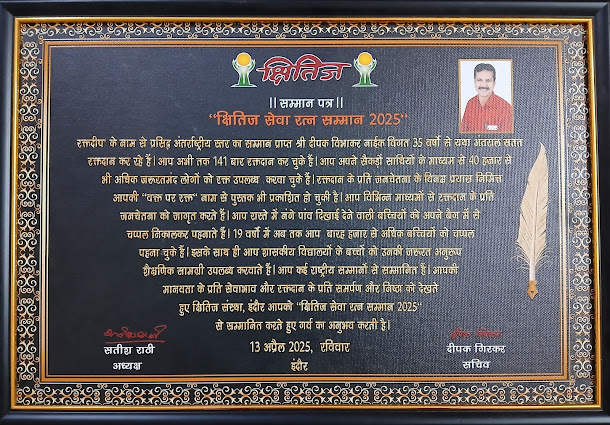 क्षितिज
॥ सम्मान पत्र ॥
"क्षितिज सेवा रत्न सम्मान 2025"
रक्तदीप' के नाम से प्रसिद्ध अंतर्राष्ट्रीय स्तर का सम्मान प्राप्त श्री दीपक विभाकर नाईक विगत 35 वर्षों से यथा अंतराल सतत
रक्तदान कर रहे हैं। आप अभी तक 141 बार रक्तदान कर चुके हैं। आप अपने सैकड़ों साथियों के माध्यम से 40 हजार से
भी अधिक जरूरतमंद लोगों को रक्त उपलब्ध करवा चुके हैं। रक्तदान के प्रति जनचेतना के विनम्र प्रयास निमित्त
आपकी "वक्त पर रक्त" नाम से पुस्तक भी प्रकाशित हो चुकी है। आप विभिन्न माध्यमों से रक्तदान के प्रति
जनचेतना को जागृत करते हैं। आप रास्ते में नंगे पांव दिखाई देने वाली बच्चियों को अपने बैग में से
चप्पल निकालकर पहनाते हैं। 19 वर्षों में अब तक आप बारह हजार से अधिक बच्चियों को चप्पल
पहना चुके हैं। इसके साथ ही आप शासकीय विद्यालयों के बच्चों को उनकी जरूरत अनुरूप
शैक्षणिक सामग्री उपलब्ध करवाते हैं। आप कई राष्ट्रीय सम्मानों से सम्मानित हैं। आपकी
मानवता के प्रति सेवाभाव और रक्तदान के प्रति समर्पण और निष्ठा को देखते
हुए क्षितिज संस्था, इंदौर आपको "क्षितिज सेवा रत्न सम्मान 2025"
से सम्मानित करते हुए गर्व का अनुभव करती है।
सतीश राठी
अध्यक्ष
13 अप्रैल 2025, रविवार
इंदौर
दीपक गिरकर
सचिव